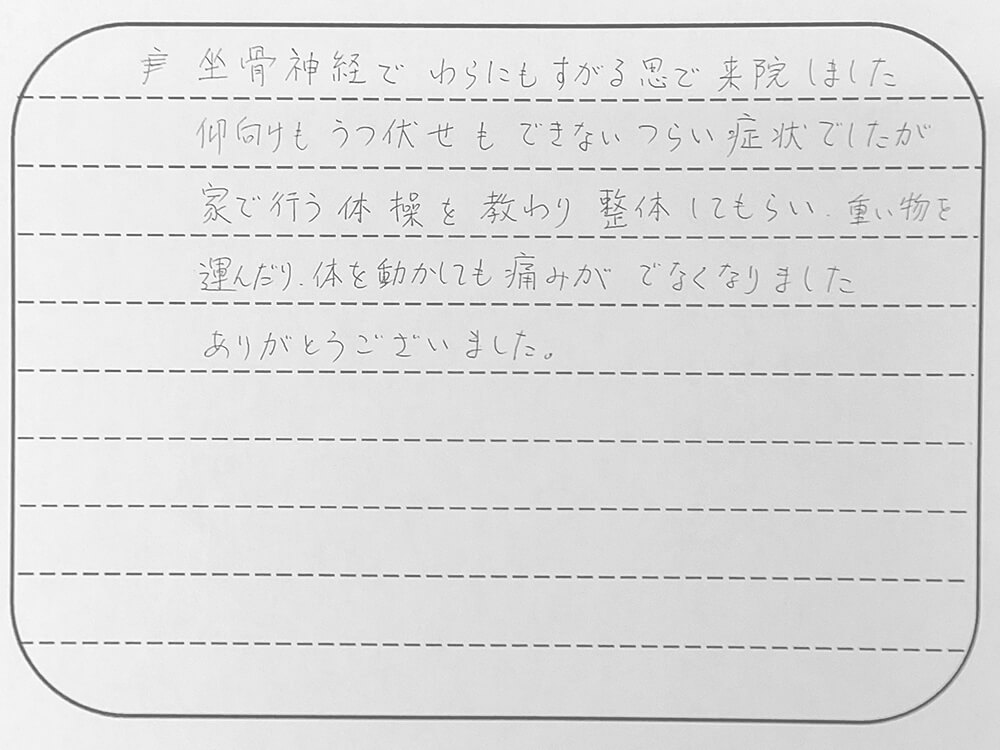 坐骨神経で わらにもすがる思で来院しました
仰向けも うつ伏せも できない つらい症状でしたが
家で行う体操を 教わり 整体してもらい、重い物を
運んだり、体を動かしても痛みが でなくなりました
ありがとうございました。